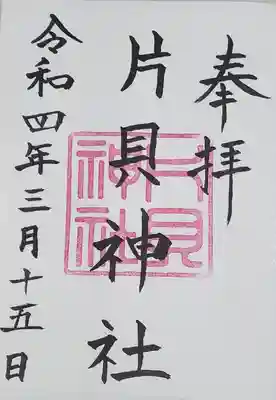 奉拝
片貝神社
令和四年三月十五日
片貝神社